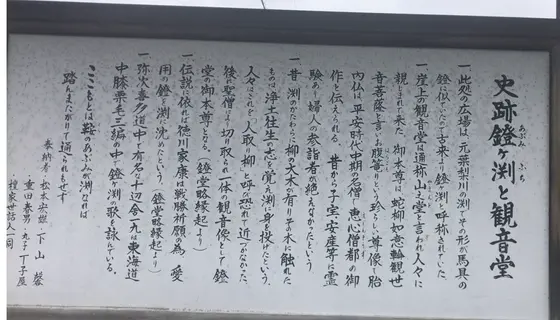 史跡鐙ヶ渕と観音堂
あぶみ ふち
一 此処の広場は、元葉梨川の渕、その形が馬具の
鐙に似ていたので古来より鐙ヶ渕と呼称されていた。
一 崖上の観音堂は通称山の堂と言われ人々に
親しまれて来た。御本尊は、蛇柳如意輪観世
音菩薩と言いお腹竜りという珍らしい尊像で胎
内仏は平安時代中期の名僧、恵心僧都の御
作と伝えられる。昔から子宝、安産等に霊
験あり婦人の参詣者が絶えなかったという
一 昔渕のかたわらに柳の大木の有り、その木に触れた
ものは浄土往生の志を覚え渕に身を投げたという、
人々はこれを人取り柳と呼び恐れて近づかなかった。
後に聖僧により切り取られ一体の観音像として鐙
堂の御本尊となる。(鐙堂略縁起より)
一 伝説に依れば徳川家康は戦勝祈願の為、愛
用の鐙を渕に沈めたという(鐙堂略縁起より)
一 弥次喜多道中で有名な十辺舎一九、東海道
中膝栗毛三編の中で鐙ヶ渕の歌を詠んでいる。
ここもとは鞍のあぶみが渕なれば
踏んまたがりて通られもせず
奉納者 松本安雄 下山馨
重田泰男 丸子丁子屋
檀家世話人一同